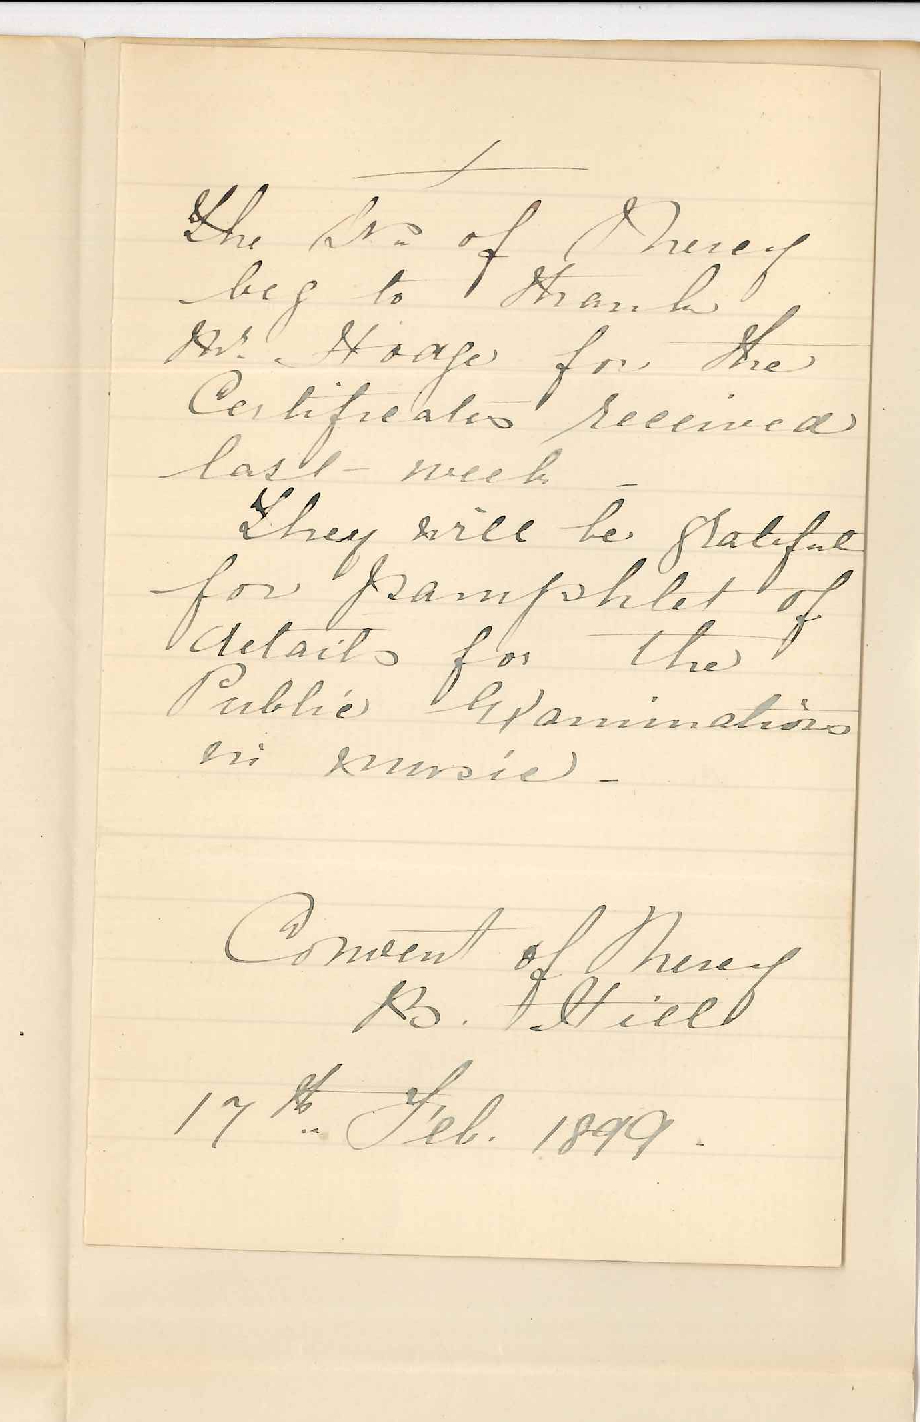 The Srs of Mercy
beg to thank
Mr. Hodge for the
Certificates received
last week -
They will be grateful
for pamphlet of
details for the
Public Examinations
in music -
Convent of Mercy
B. Hill
17th Feb. 1899.